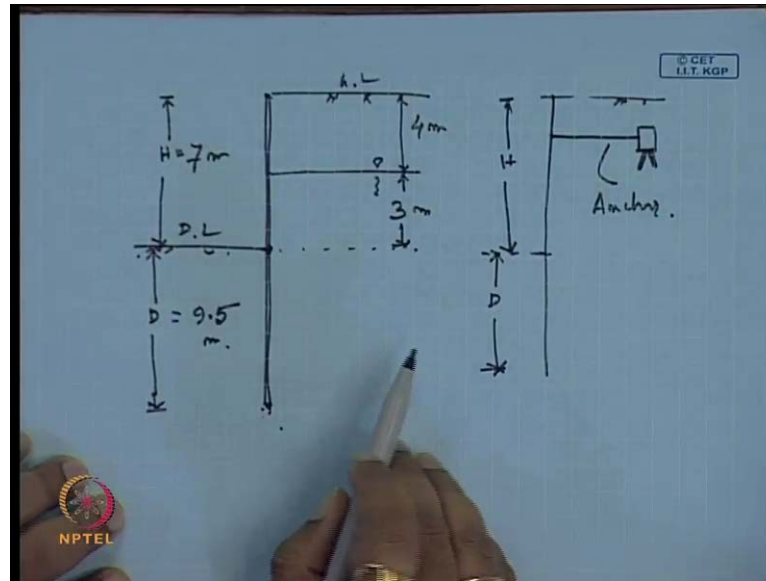 © CET
I.I.T. KGP
G.L
H = 7 m
4 m
3 m
D.L
D = 9.5
m.
H
Anchor.
D
NPTEL